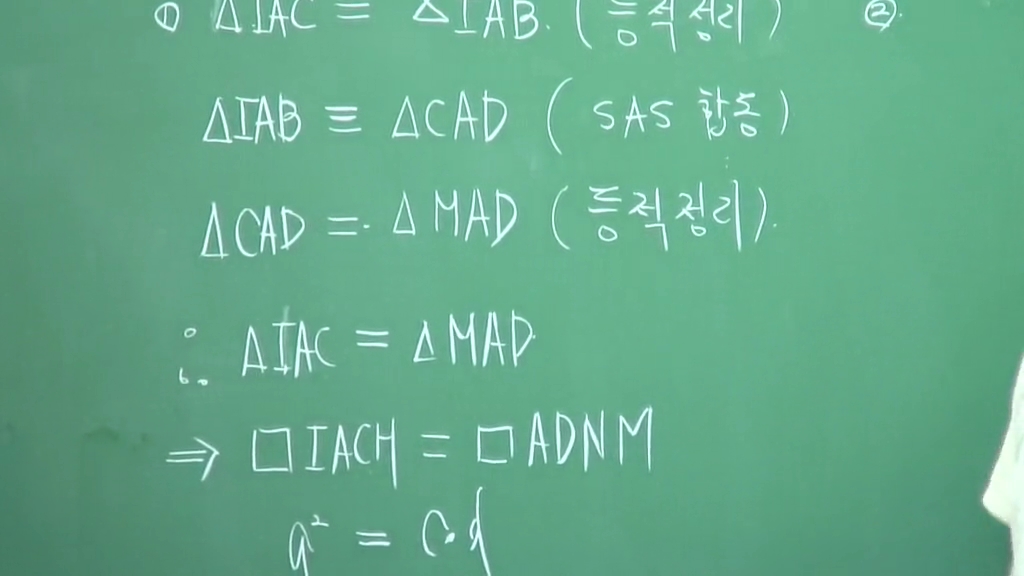 ① △IAC = △IAB. (등적정리) ②.
△IAB ≡ △CAD ( SAS 합동 )
△CAD = △MAD (등적정리).
∴ △IAC = △MAD
⇒ □IACH = □ADNM
a² = c·d